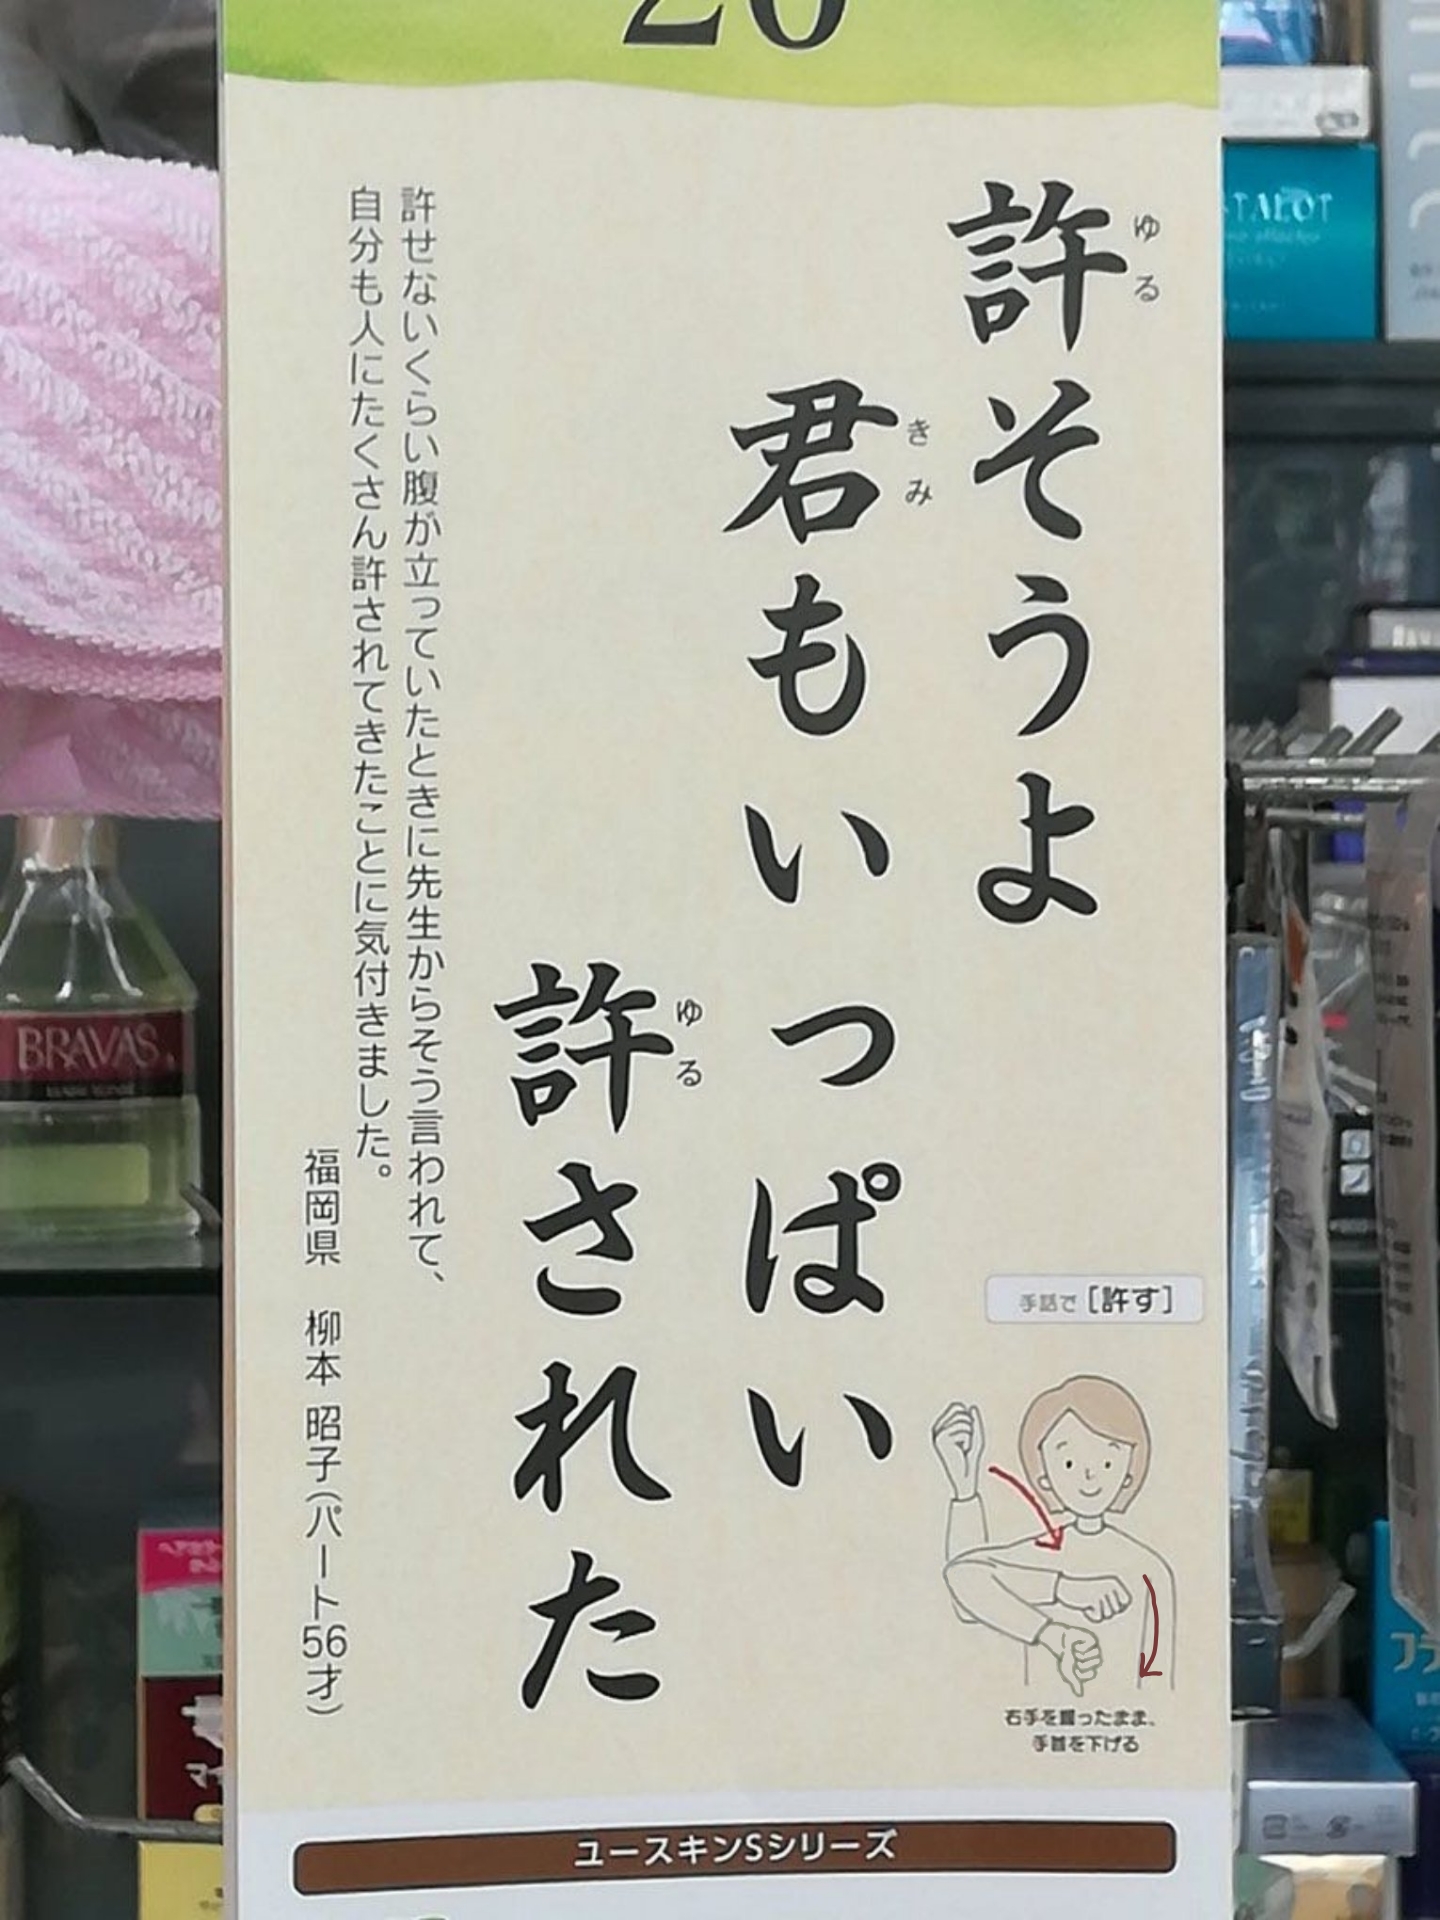 20
許そうよ
ゆる
君もいっぱい
きみ
許された
ゆる
許せないくらい腹が立っていたときに先生からそう言われて、
自分も人にたくさん許されてきたことに気付きました。
福岡県 柳本 昭子(パート56才)
手話で [許す]
右手を握ったまま、
手首を下げる
ユースキンSシリーズ
BRAVAS